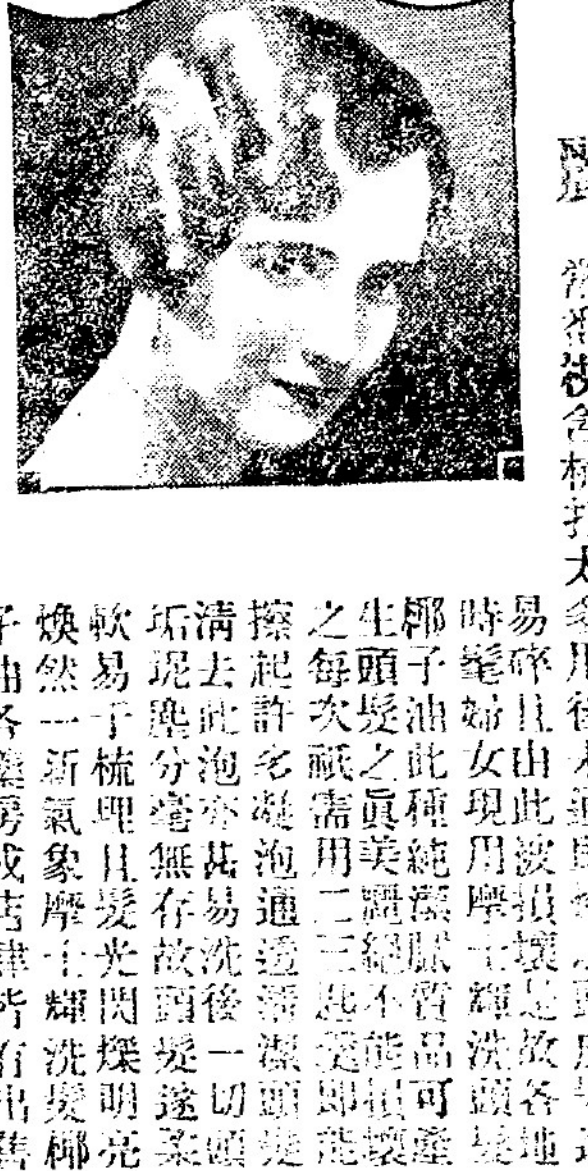 麗
易碎且由此波損壞是故各地
時髦婦女現用摩士輝洗頭髮
椰子油此種純潔膩質品可產
生頭髮之眞美麗絕不能損壞
之每次祇需用二三匙髮即能
擦起許多凝泡通透清潔頭髮
淸去此泡亦甚易洗後一切頭
垢坭塵分毫無存故頭髮遂柔
軟易于梳理且髮光閃爍明亮
煥然一新氣象摩士輝洗髮椰
子油各藥房或店肆皆有出售